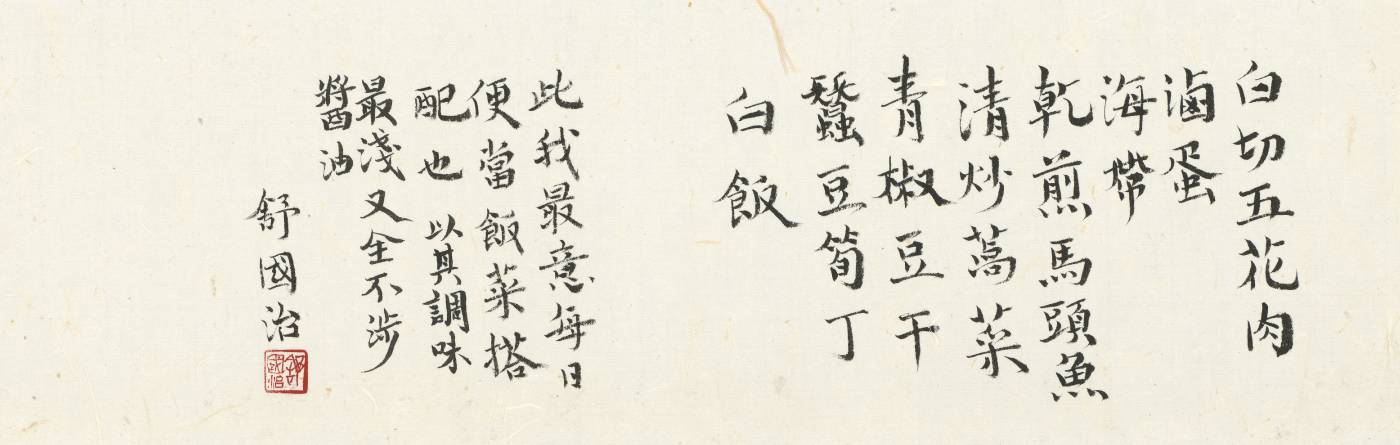 白切五花肉
滷蛋
海帶
乾煎馬頭魚
清炒蒿菜
青椒豆干
蠶豆筍丁
白飯
此我最意每日
便當飯菜搭
配也 以其調味
最淺又全不涉
醬油
舒國治
舒國治